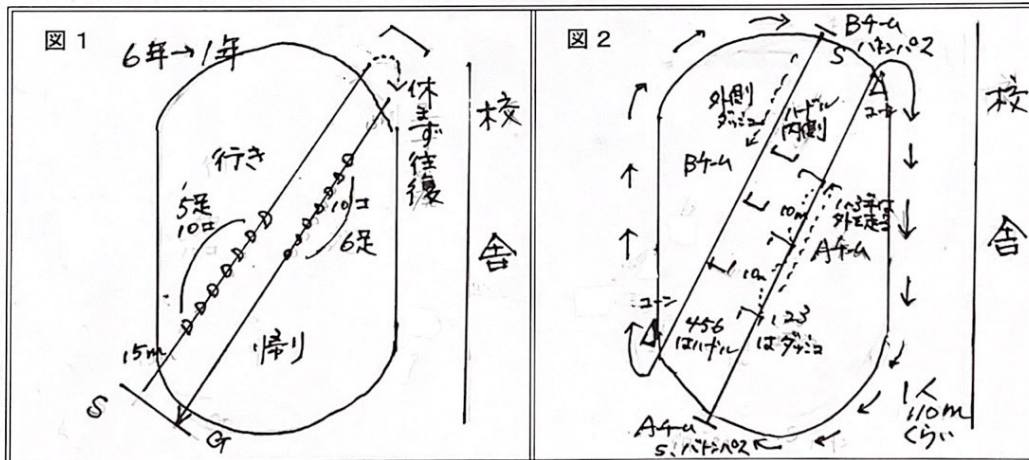 図1
6年→1年
行き
5足
10コ
10コ
6足
休まず往復
帰り
15m
S
G
校
舎
図2
Bチーム
バトンパス
S
コーン
外側
ダッシュ
ハードル
内側
Bチーム
10m
10m
1〜3年は
外を走る
Aチーム
コーン
456
はハードル
123
はダッシュ
Aチーム
S:バトンパス
1人
110m
くらい
校
舎